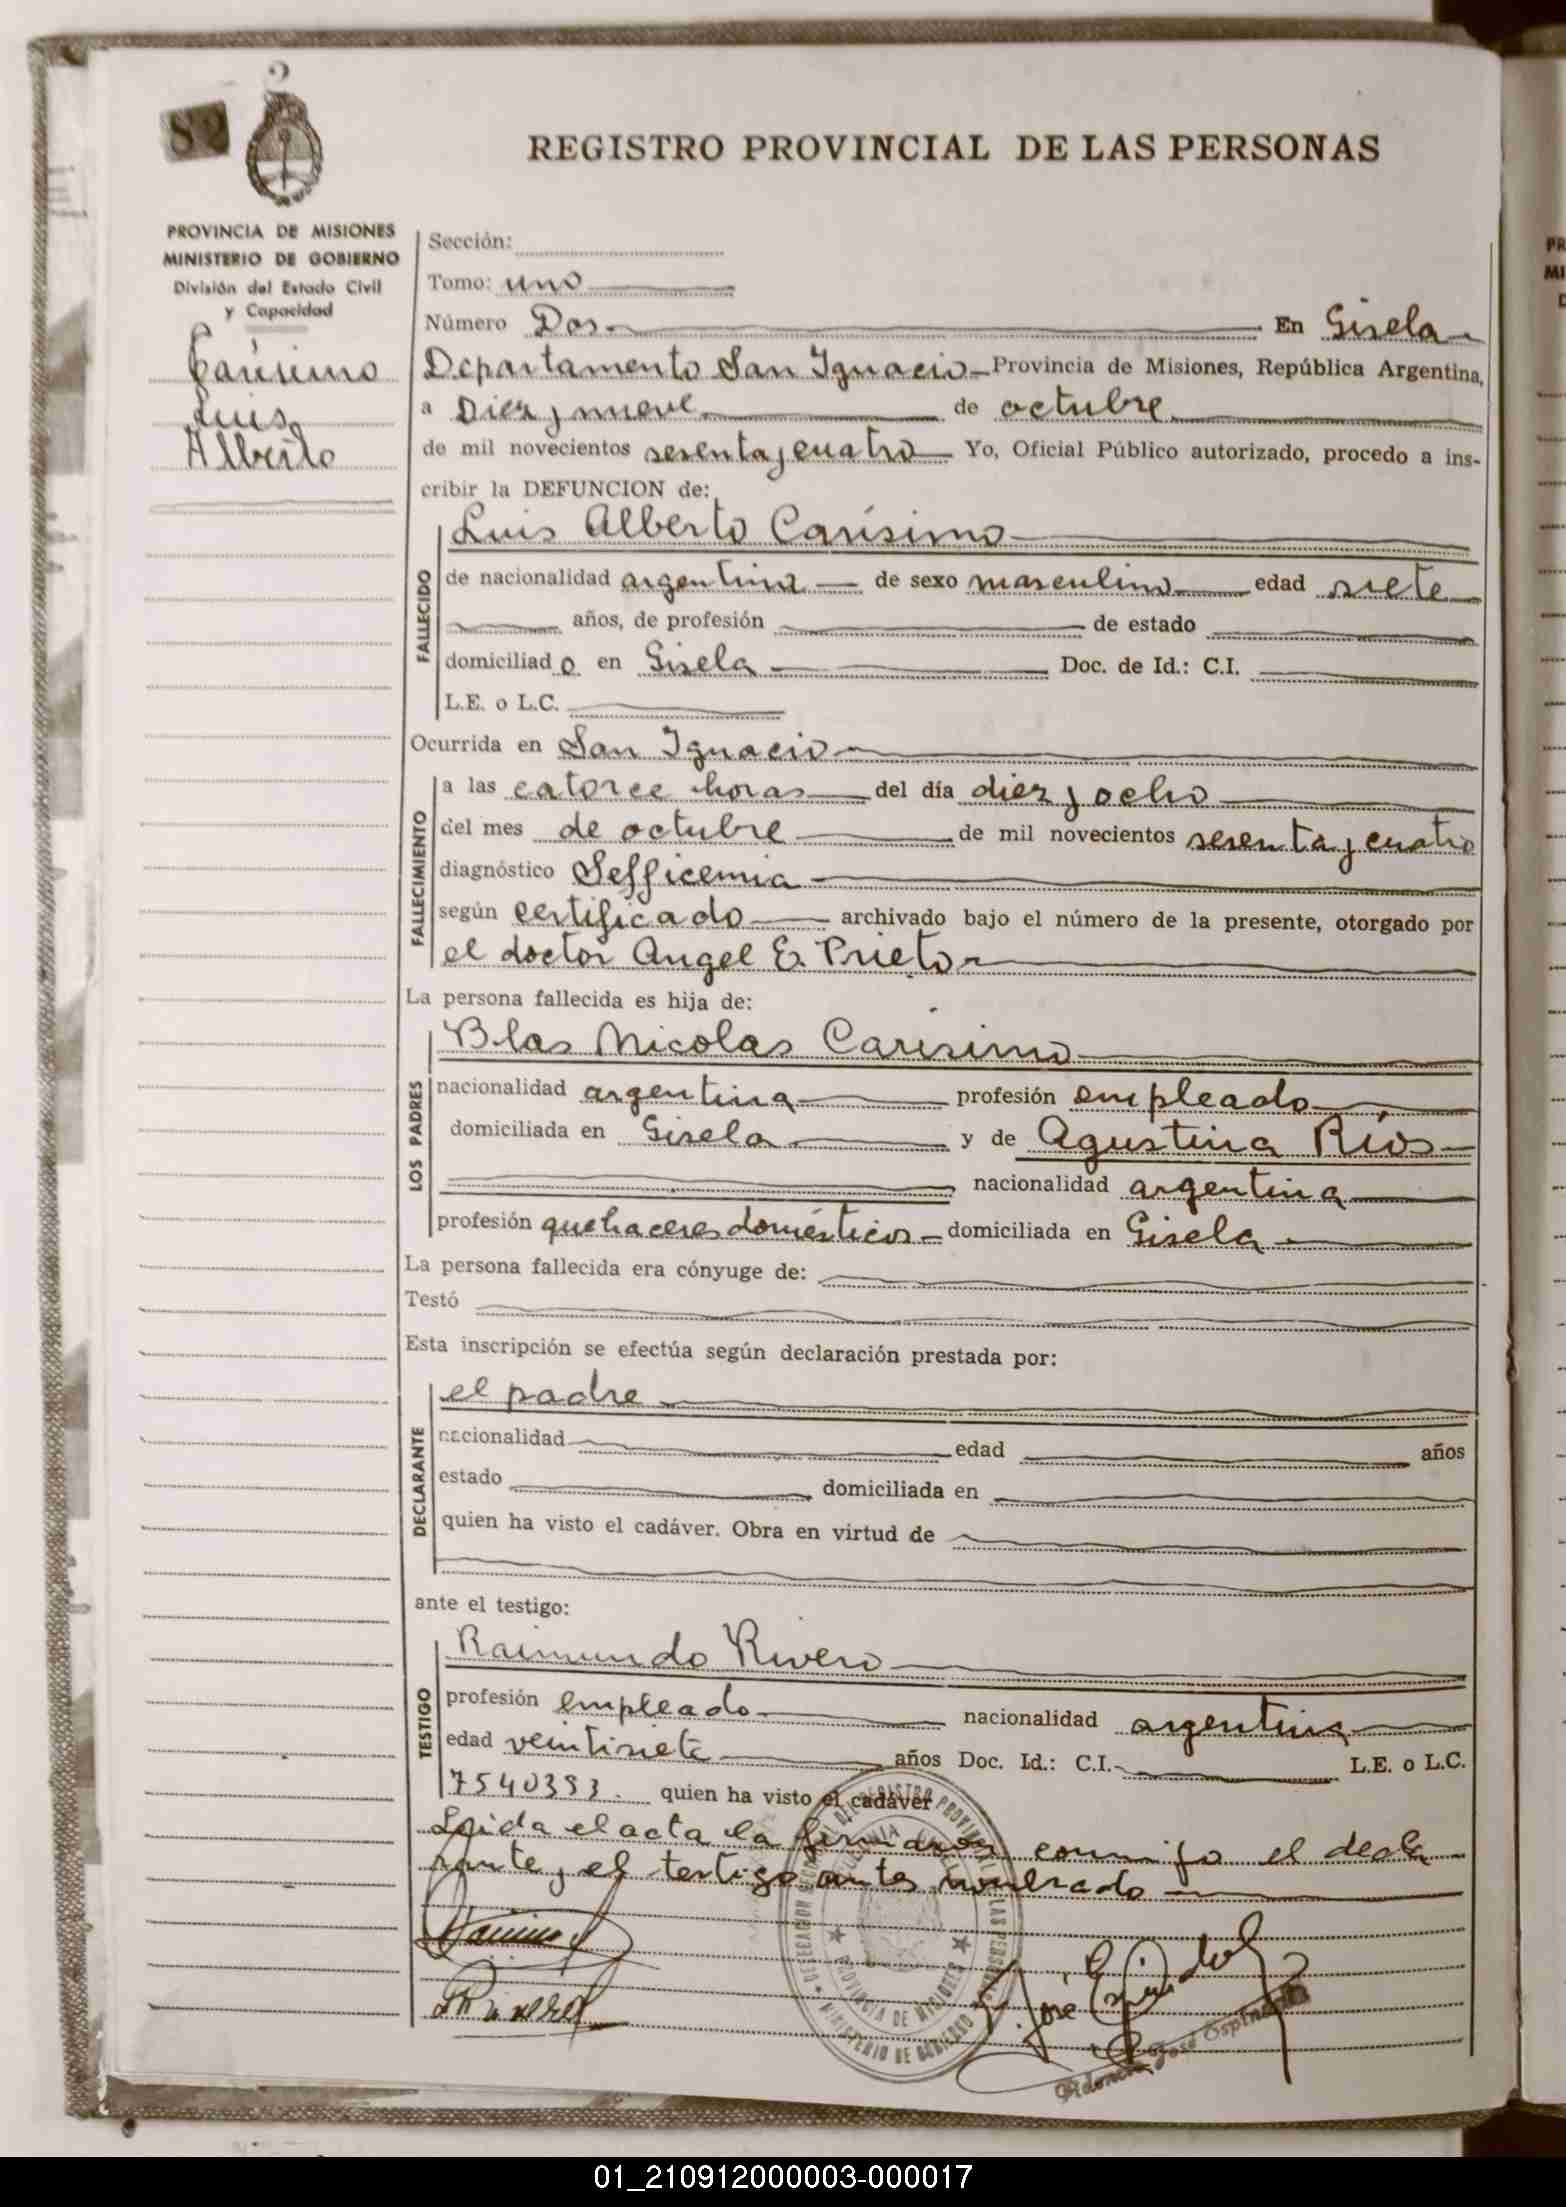 2
82
REGISTRO PROVINCIAL DE LAS PERSONAS
PROVINCIA DE MISIONES
MINISTERIO DE GOBIERNO
División del Estado Civil
y Capacidad
Carísimo
Luis
Alberto
Sección:
Tomo: uno
Número Dos En Gisela
Departamento San Ignacio Provincia de Misiones, República Argentina,
a Diez y nueve de octubre
de mil novecientos sesenta y cuatro Yo, Oficial Público autorizado, procedo a ins-
cribir la DEFUNCION de:
FALLECIDO
Luis Alberto Carísimo
de nacionalidad argentina de sexo masculino edad siete
años, de profesión de estado
domiciliado en Gisela Doc. de Id.: C.I.
L.E. o L.C.
Ocurrida en San Ignacio
FALLECIMIENTO
a las catorce horas del día diez y ocho
del mes de octubre de mil novecientos sesenta y cuatro
diagnóstico Sefficemia
según certificado archivado bajo el número de la presente, otorgado por
el doctor Angel E. Prieto
La persona fallecida es hija de:
LOS PADRES
Blas Nicolas Carísimo
nacionalidad argentina profesión empleado
domiciliada en Gisela y de Agustina Ríos
nacionalidad argentina
profesión quehaceres domésticos domiciliada en Gisela
La persona fallecida era cónyuge de:
Testó
Esta inscripción se efectúa según declaración prestada por:
DECLARANTE
el padre
nacionalidad edad años
estado domiciliada en
quien ha visto el cadáver. Obra en virtud de
ante el testigo:
TESTIGO
Raimundo Rivero
profesión empleado nacionalidad argentina
edad veintisiete años Doc. Id.: C.I. L.E. o L.C.
7540393. quien ha visto el cadáver
Leida el acta la firmaron conmigo el decla
rante y el testigo antes nombrado
PROVINCIA DE MISIONES
MINISTERIO DE GOBIERNO
José
José Espíndola
01_210912000003-000017